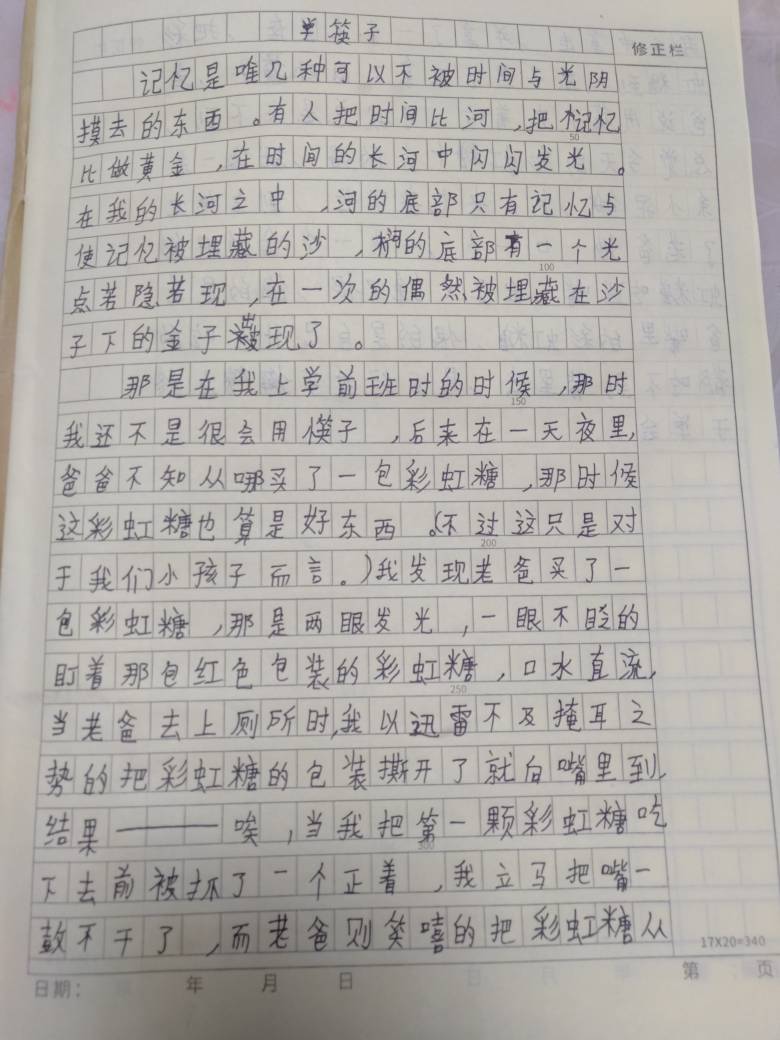 学筷子
修正栏
记忆是唯几种可以不被时间与光阴
摸去的东西。有人把时间比河,把记忆
50
比做黄金,在时间的长河中闪闪发光。
在我的长河之中,河的底部只有记忆与
使记忆被埋藏的沙,的底部有一个光
100
点若隐若现,在一次的偶然被埋藏在沙
子下的金子被出现了。
那是在我上学前班时的时候,那时
150
我还不是很会用筷子,后来在一天夜里,
爸爸不知从哪买了一包彩虹糖,那时候
这彩虹糖也算是好东西。(不过这只是对
200
于我们小孩子而言。)我发现老爸买了一
包彩虹糖,那是两眼发光,一眼不眨的
盯着那包红色包装的彩虹糖,口水直流,
250
当老爸去上厕所时,我以迅雷不及掩耳之
势的把彩虹糖的包装撕开了就向嘴里到,
结果———唉,当我把第一颗彩虹糖吃
300
下去前被抓了一个正着,我立马把嘴一
鼓不干了,而老爸则笑嘻的把彩虹糖从
17X20=340
日期: 年 月 日
第 页